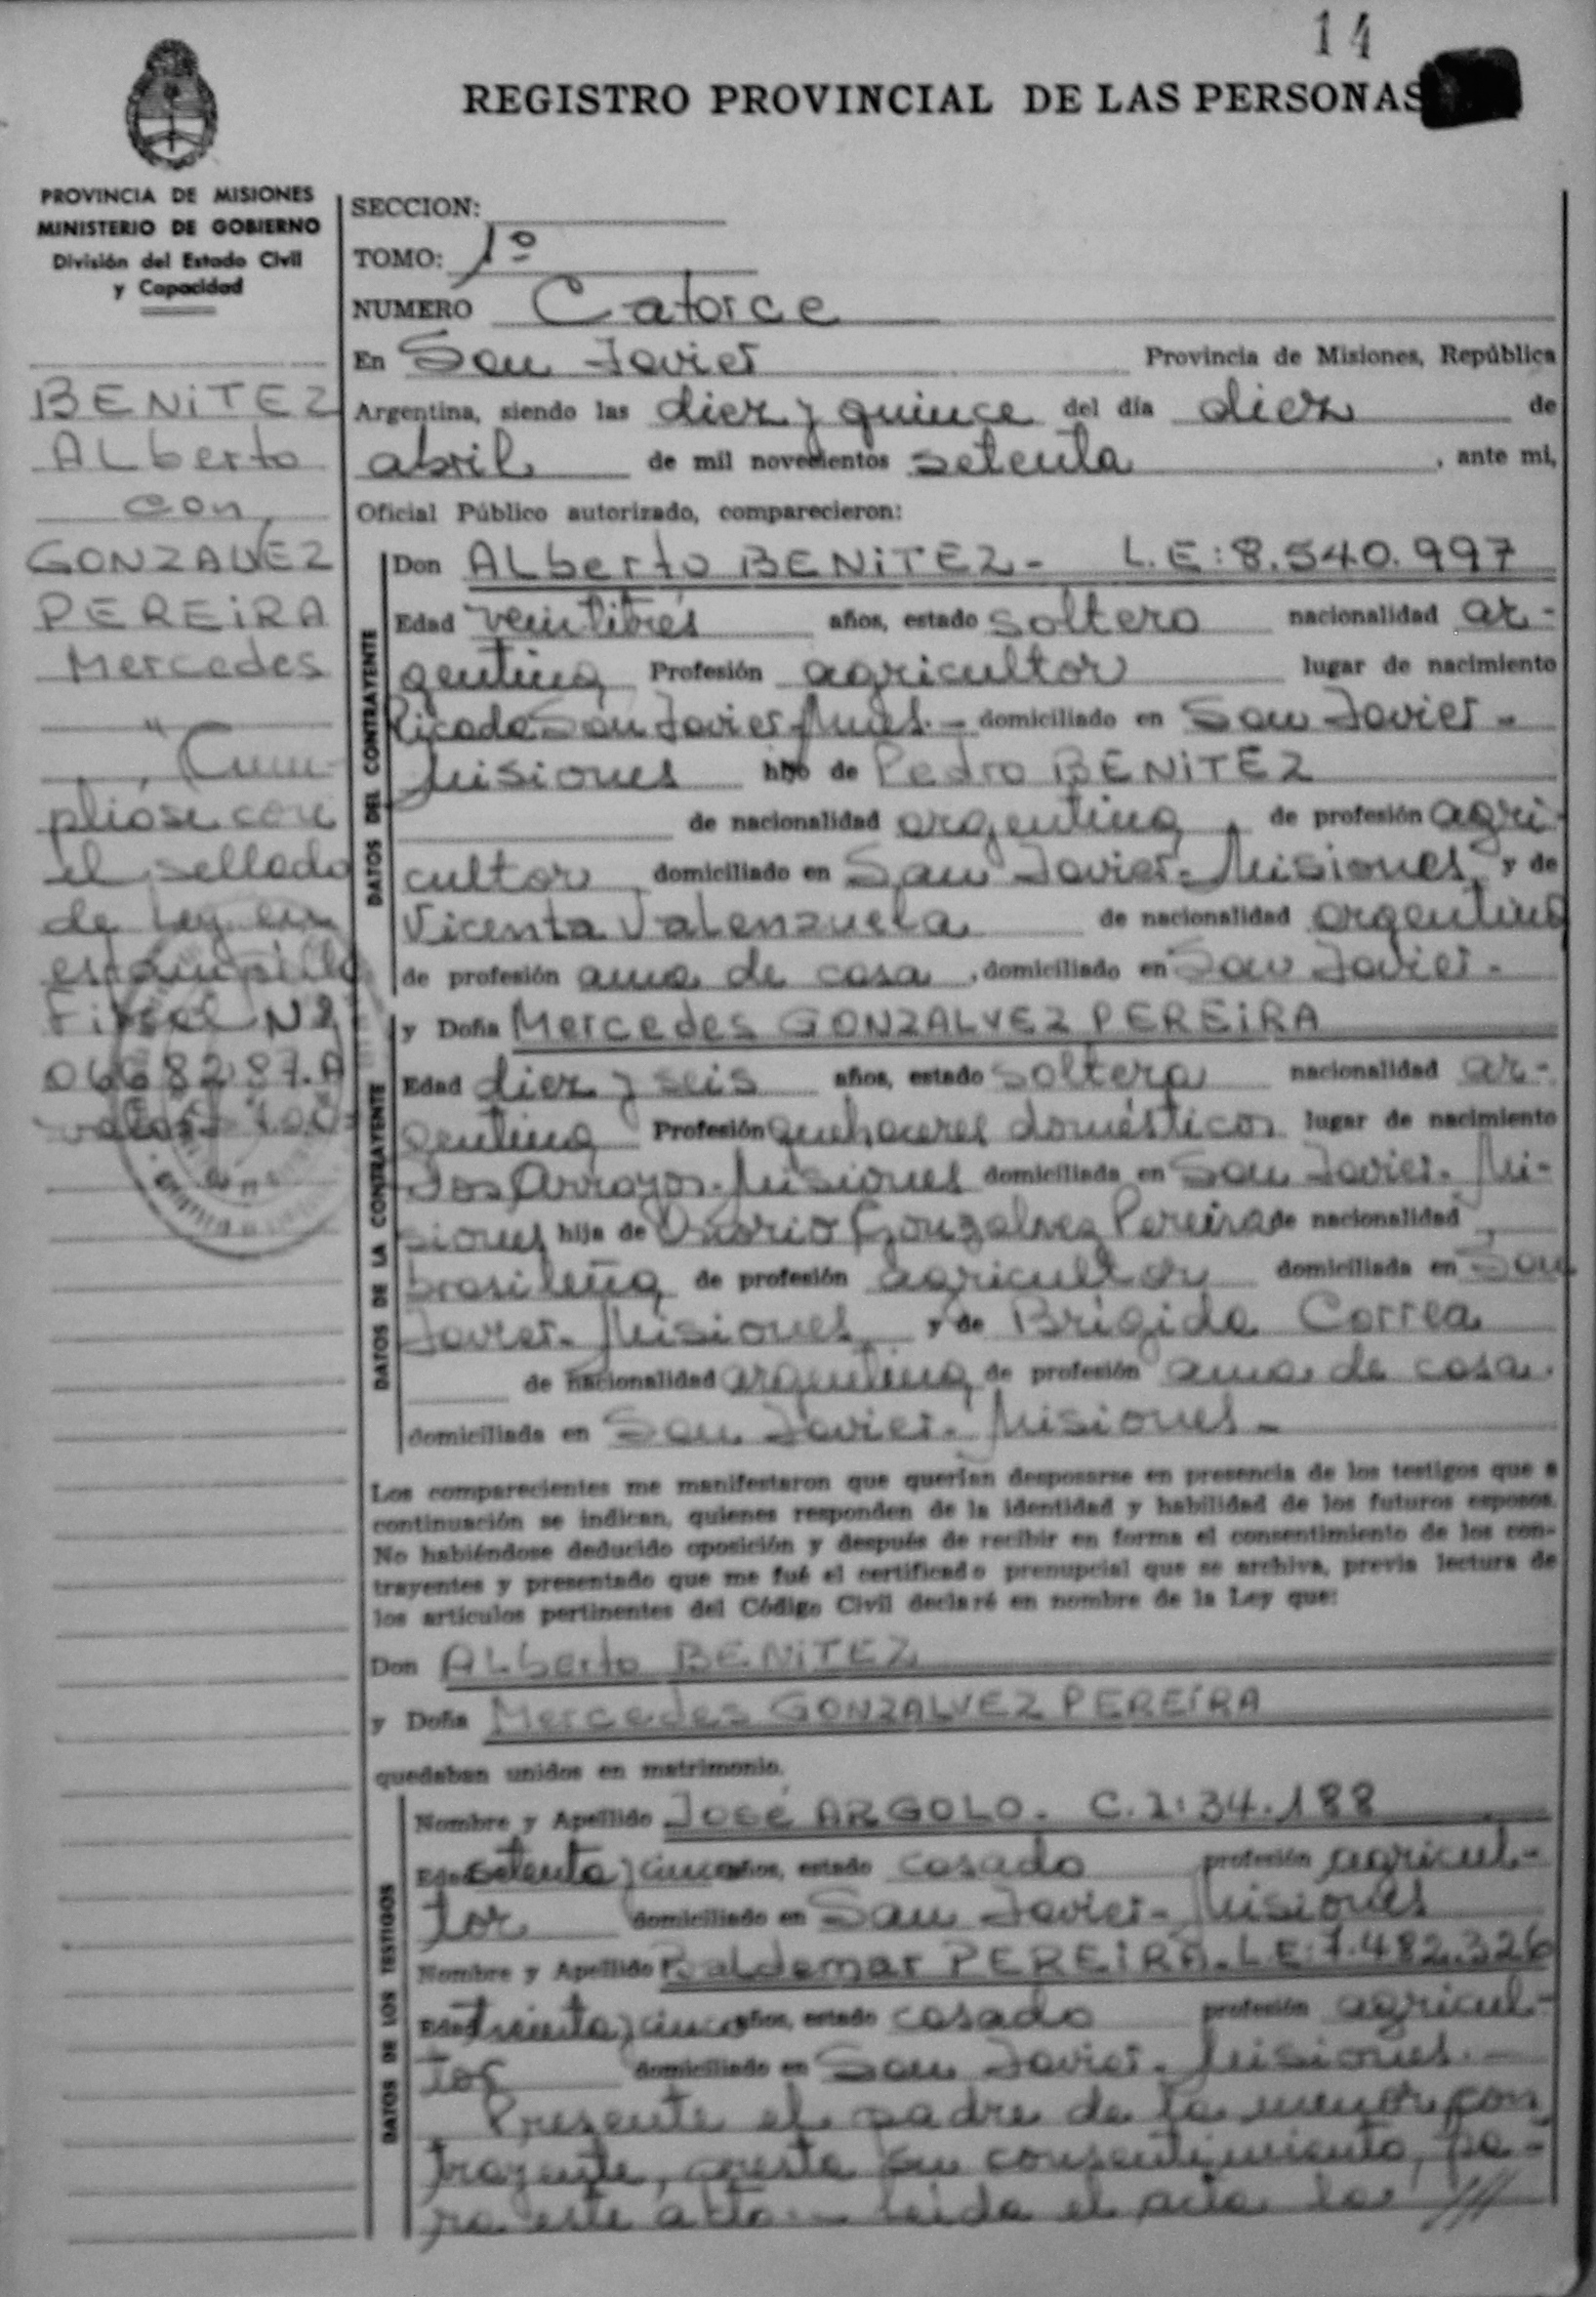 14
REGISTRO PROVINCIAL DE LAS PERSONAS
PROVINCIA DE MISIONES
MINISTERIO DE GOBIERNO
División del Estado Civil
y Capacidad
BENITEZ
ALberto
con
GONZALVEZ
PEREIRA
Mercedes
"Cum-
plióse con
el sellado
de Ley en
estampilla
Fiscal Nº
valor
SECCION:
TOMO: 1º
NUMERO Catorce
En San Javier Provincia de Misiones, República
Argentina, siendo las diez y quince del día diez de
abril de mil novecientos setenta, ante mi,
Oficial Público autorizado, comparecieron:
DATOS DEL CONTRAYENTE
Don ALberto BENITEZ- L.E:8.540.997
Edad veintitrés años, estado soltero nacionalidad ar-
gentina Profesión agricultor lugar de nacimiento
San Javier Mnes.- domiciliado en San Javier-
Misiones hijo de Pedro BENITEZ
de nacionalidad argentina, de profesión agri-
cultor domiciliado en San Javier-Misiones y de
Vicenta Valenzuela de nacionalidad argentina
de profesión ama de casa, domiciliado en San Javier-
DATOS DE LA CONTRAYENTE
y Doña Mercedes GONZALVEZ PEREIRA
Edad diez y seis años, estado soltera nacionalidad ar-
gentina Profesión quehaceres domésticos lugar de nacimiento
Dos Arroyos-Misiones domiciliada en San Javier-Mi-
siones hija de Osorio Gonzalvez Pereira de nacionalidad
brasileña de profesión agricultor domiciliada en San
Javier-Misiones y de Brígida Correa
de nacionalidad argentina, de profesión ama de casa.
domiciliada en San Javier-Misiones-
Los comparecientes me manifestaron que querían desposarse en presencia de los testigos que a
continuación se indican, quienes responden de la identidad y habilidad de los futuros esposos.
No habiéndose deducido oposición y después de recibir en forma el consentimiento de los con-
trayentes y presentado que me fué el certificado prenupcial que se archiva, previa lectura de
los artículos pertinentes del Código Civil declaré en nombre de la Ley que:
Don ALberto BENITEZ
y Doña Mercedes GONZALVEZ PEREIRA
quedaban unidos en matrimonio.
DATOS DE LOS TESTIGOS
Nombre y Apellido JOSÉ ARGOLO- C.I:34.188
Edad setenta y cinco años, estado casado profesión agricul-
tor domiciliado en San Javier-Misiones
Nombre y Apellido Baldemar PEREIRA-L.E:7.482.326
Edad treinta y cinco años, estado casado profesión agricul-
tor domiciliado en San Javier-Misiones.-
Presente el padre de la menor con
trayente, presta su consentimiento, pa-
ra este acto.- Leída el acta la ///